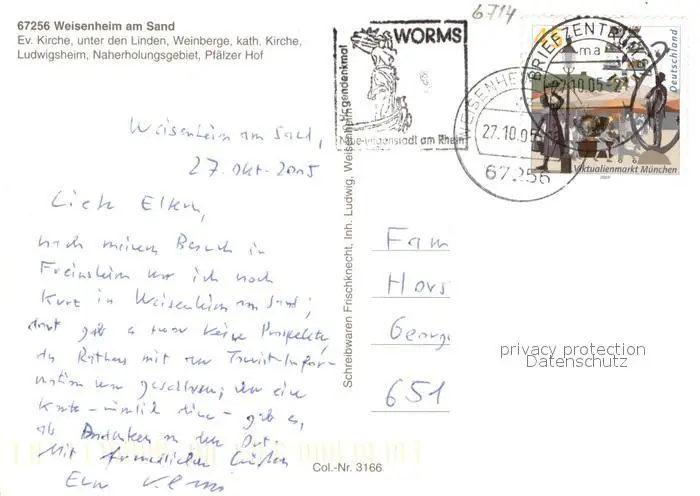 67256 Weisenheim am Sand
Ev. Kirche, unter den Linden, Weinberge, kath. Kirche,
Ludwigsheim, Naherholungsgebiet, Pfälzer Hof
6714
WORMS
Nibelungenstadt am Rhein
BRIEFZENTRUM
ma
27.10.05-2
WEISENHEIM
27.10.05
67256
Deutschland
Viktualienmarkt München
Weisenheim am Sand,
27. Okt. 2005
Liebe Eltern,
nach meinem Besuch in
Freinsheim war ich noch
kurz in Weisenheim am Sand;
dort gab es zwar keine Prospekte,
das Rathaus mit der Tourist-Infor-
mation war geschlossen; aber eine
Karte - nämlich diese - gab es,
als Andenken an den Ort.
Mit freundlichen Grüßen
Euer
Schreibwaren Frischknecht, Inh. Ludwig, Weisenheim
Fam
Hors
Georg
651
privacy protection
Datenschutz
Col.-Nr. 3166